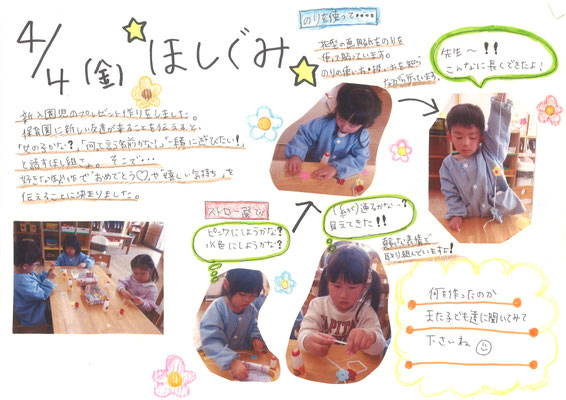 4/4 (金)
ほしぐみ
新入園児のプレゼント作りをしました。
保育園に新しい友達が来ることを伝えると、
「女の子かな?」「何て言う名前かな」「一緒に遊びたい!」
と話すほし組さん。そこで…
好きな製作で"おめでとう♡"や"嬉しい気持ち"を
伝えることに決まりました。
のりを使って・・・・
花型の画用紙をのりを
使って貼っています。
のりの使い方・量・力を知り
ながら行っています。
先生〜!!
こんなに長くできたよ!
ストロー選び
ピンクにしようかな?
水色にしようかな?
(糸が)通るかな〜?
見えてきた!!
真剣な表情で
取り組んでいますよ!
何を作ったのか
また子ども達に聞いてみて
下さいね